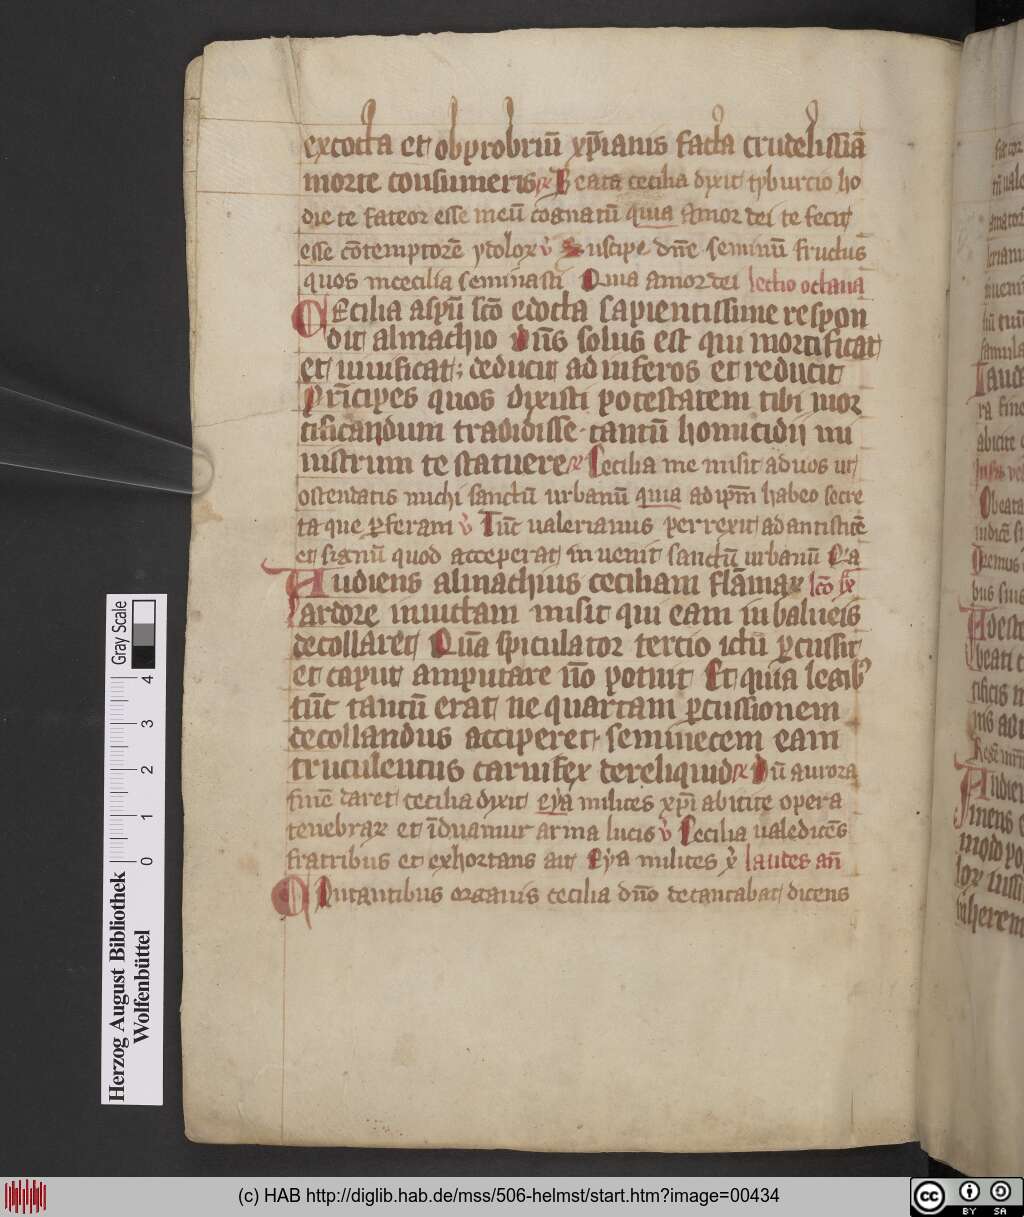 excocta et obprobriū xp̄ianis facta crudelissiā
morte consumeris ꝶ Beata cecilia dixit tyburcio ho
die te fateor esse meū cognatū quia amor dei te fecit
esse cōtemptorē ydolorꝝ v̊ Suscipe dn̄e seminū fructus
quos in cecilia seminasti Quia amor dei lectio octaua
CEcilia a sp̄u sc̄o edocta sapientissime respon
dit almachio dn̄s solus est qui mortificat
et uiuificat; deducit ad inferos et reducit
Pri̅cipes quos dixisti potestatem tibi mor
tificandum tradidisse tantū homicidij mi
nistrum te statuere ꝶ Cecilia me misit ad uos ut
ostendatis michi sanctū urbanū quia ad ip̄m habeo secre
ta que ꝑferam v̊ Tūc ualerianus perrexit ad antistitē
et signū quod acceperat inuenit sanctū urbanū
Audiens almachius ceciliam flāmaꝝ lc̄o
ardore inuictam misit qui eam in balneis
decollaret Quā spiculator tercio ictu ꝑcussit
et caput amputare nō potuit Et quia legibꝰ
tūc tantū erat ne quartam ꝑcussionem
decollandus acciperet seminecem eam
truculentus carnifex dereliquid ꝶ Dū aurora
finē daret cecilia dixit eya milites xp̄i abicite opera
tenebraꝝ et īduamur arma lucis v̊ Cecilia ualedicēs
fratribus et exhortans ait Eya milites v̊ laudes an̄
CAntantibus organis cecilia dn̄o decantabat dicens
Gray Scale
0 1 2 3 4
Herzog August Bibliothek
Wolfenbüttel
(c) HAB http://diglib.hab.de/mss/506-helmst/start.htm?image=00434
cc BY SA